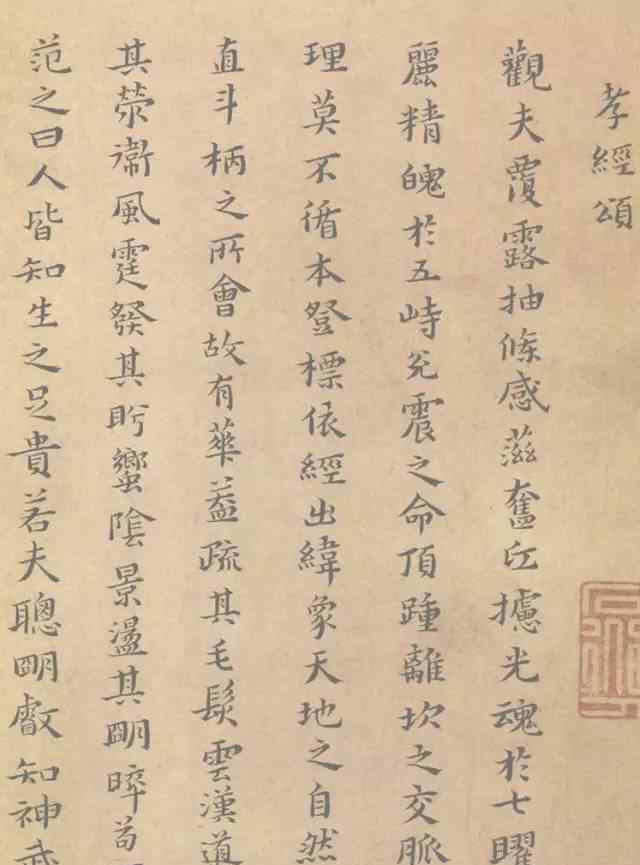 孝經頌
觀夫覆露抽條感蒸奮㐫攄光魂於七曜
麗精魄於五峙兊震之命頂踵離坎之交脈
理莫不循本登標依經出緯象天地之自然
直斗柄之所會故有華蓋疏其毛髮雲漢道
其荥衛風霆發其肸蠁陰景盪其朙晬苟
范之曰人皆知生之足貴若夫聰朙叡知神武